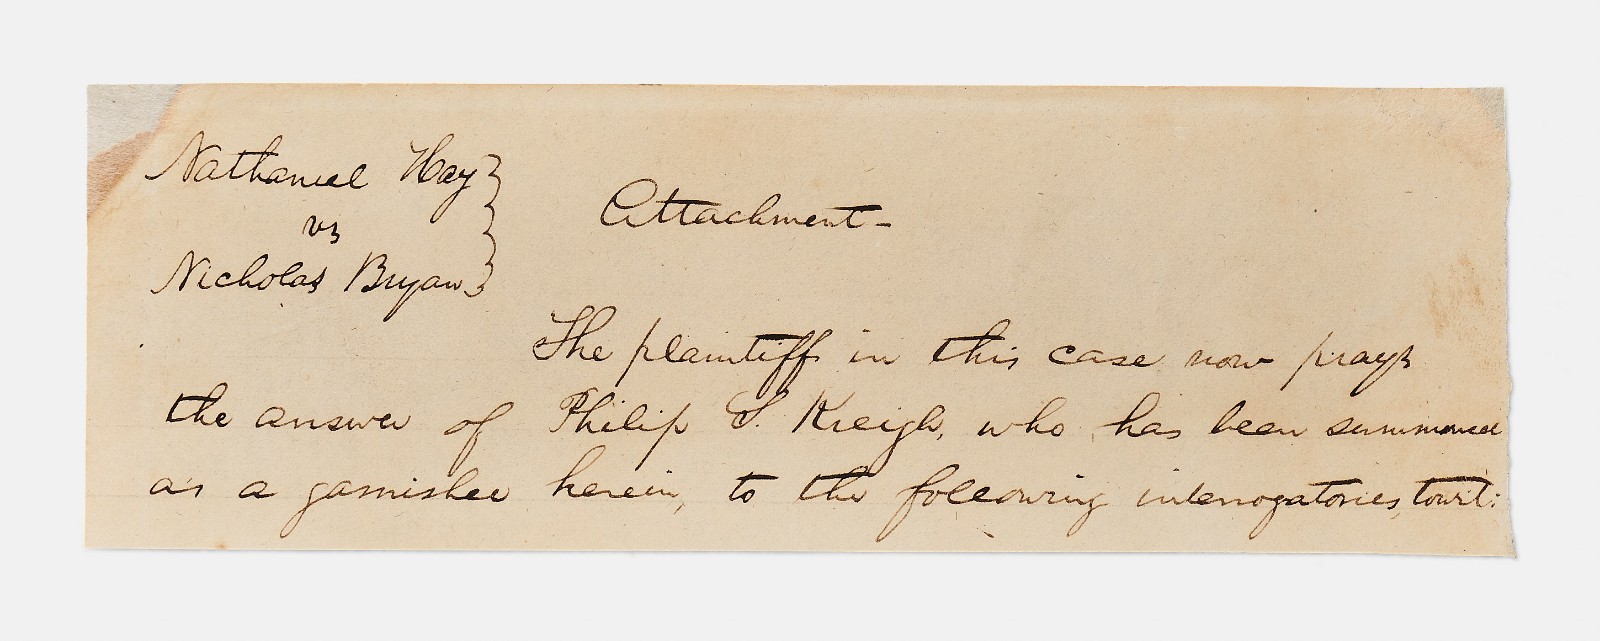 Nathaniel Hay
vs
Nicholas Bryan
Attachment-
The plaintiff in this case now prays
the answer of Philip S. Kreigh, who has been summoned
as a garnishee herein, to the following interrogatories, towit: